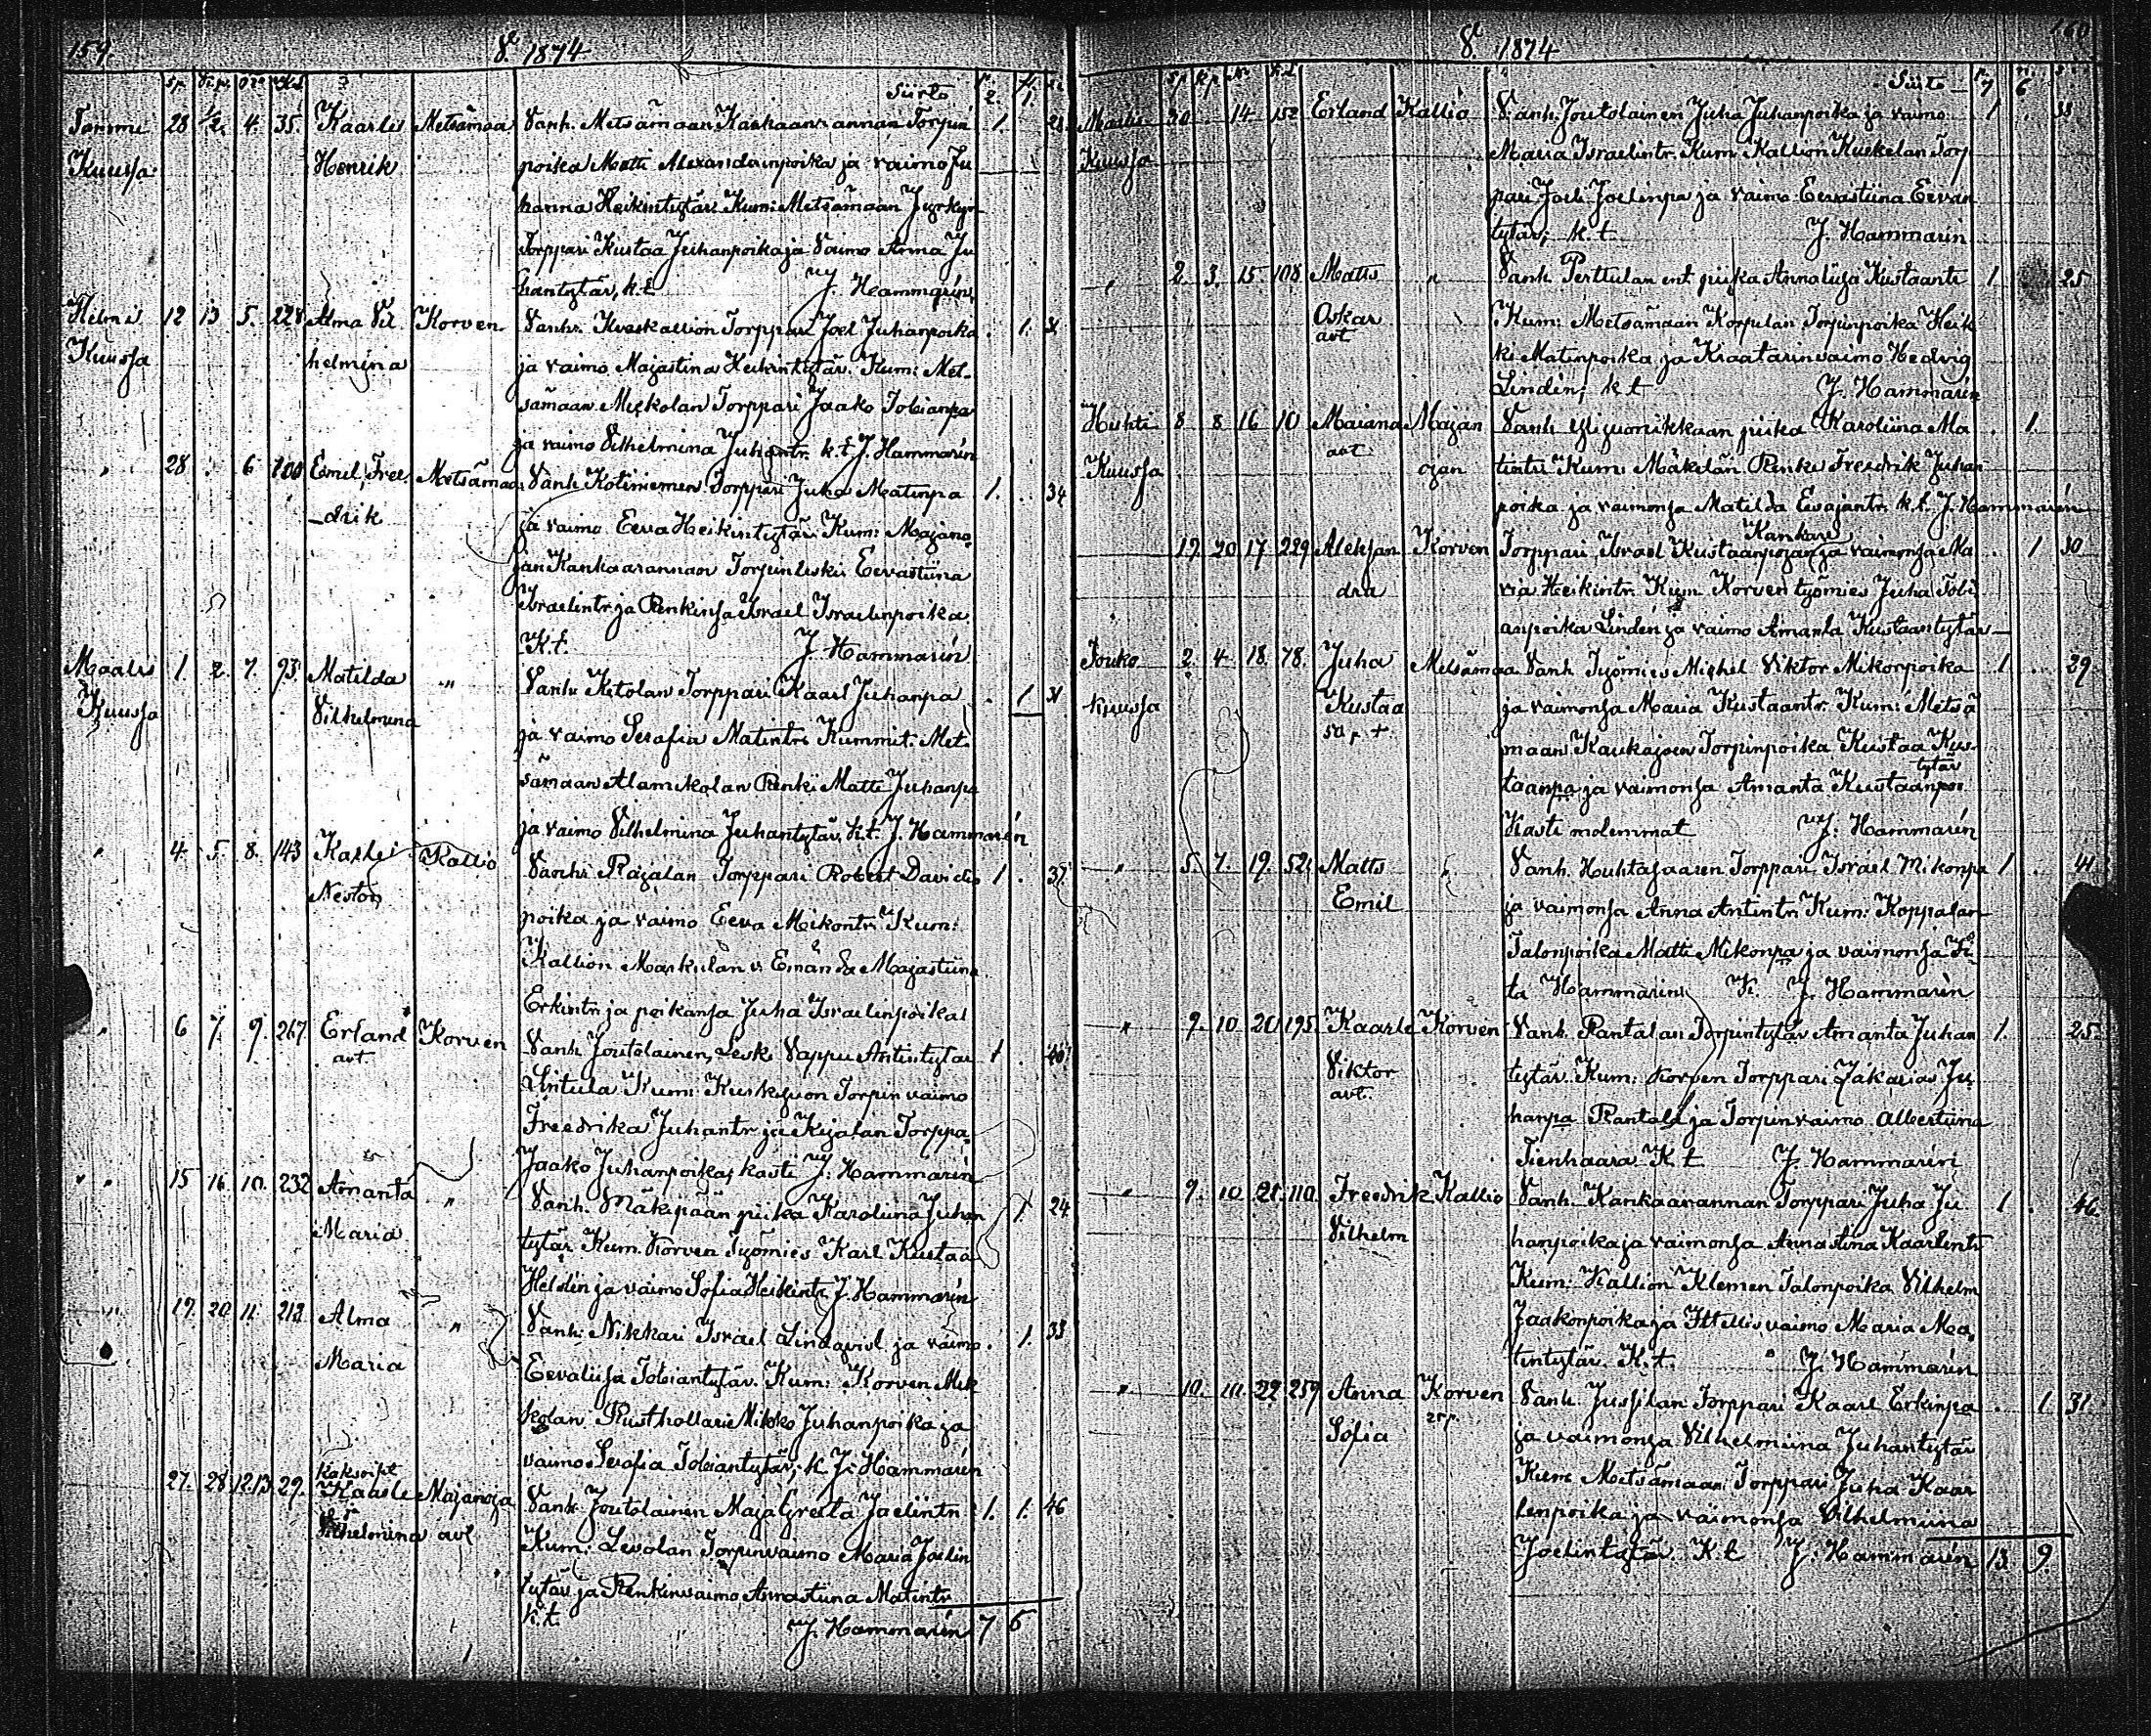 159. V. 1874
Siirto 2. 1.
Tammi 28 1/2. 4. 35. Kaarle Metsämaa Vanh. Metsämaan Kankaanrannan Torpin 1. 28.
Kuussa Henrik poika Matti Alexanderinpoika ja vaimo Ju
hanna Heikintytär Kum: Metsämaan
Torppari Kustaa Juhanpoika ja Vaimo Anna Ju
hantytär, k.t. J. Hammarén
Helmi 12 13 5. 228 Alma Vil Korven Vanh. Kveskallion Torppari Joel Juhanpoika 1.
Kuussa helmina ja vaimo Majastina Heikintytär. Kum: Met-
sämaan Mickolan Torppari Jaako Tobianpa
ja vaimo Vilhelmina Juhantr. k.t. J. Hammarén
" 28 6 100 Emil Free Metsämaa Vanh Kotiniemen Torppari Juha Matinpa 1. 34
drik ja vaimo Eeva Heikintytär Kum: Majano
jan Kankaarannan Torpinleski Eevastiina
Israelintr ja Renkinsa Israel Israelinpoika
K.t. J. Hammarén
Maalis 1. 2. 7. 93. Matilda " Vanh: Ketolan Torppari Kaarl Juhanpa 1
Kuussa Vilhelmina ja vaimo Serafia Matintr. Kummit. Met
sämaan Alamikolan Renki Matti Juhanpa
ja vaimo Vilhelmina Juhantytär, k.t. J. Hammarén
" 4. 5. 8. 143 Kallio Vanh: Rajalan Torppari Robert Davidin 1 37
Nestor poika ja vaimo Eeva Mikontr. Kum:
Kallion Markulan Emän Majastiina
Erkintr. ja poikansa Juha Israelinpoika
" 6 7. 9. 267. Erland Korven Vanh. Joutolainen, Leski Vappu Antintytär 1 40
avt Kum: Torpin vaimo
Freedrika Juhantr. ja Kujalan Torppa
Jaako Juhanpoika, kasti J. Hammarén
" 15 16. 10. 232 Amanta " Vanh. Mäkipään piika Karoliina Juhan 1. 24
Maria tytär Kum. Korven Työmies Karl Kustaa
Heldén ja vaimo Sofia Heikintr. J. Hammarén
" 19. 20. 11. 212 Alma " Vanh: Nikkari Israel Lindqvist ja vaimo 1. 33
Maria Eevaliisa Tobiantytär. Kum: Korven Mik
kolan Rusthollari Mikko Juhanpoika ja
vaimo Serafia Tobiantytär, k. J. Hammarén
27. 28 12.13 29. kaksoiset Kaarle Majanoja Vanh. Joutolainen Maja Greta Jaelintr. 1. 1. 46
ja Vilhelmina avt Kum: Levolan Torpinvaimo Maria Joelin
tytär ja Renkinvaimo Annastiina Matintr
k.t. J. Hammarén 7 6
160
V. 1874
Siirto 7 6
Maalis 20 14 152 Erland Kallio Vanh. Joutolainen Juha Juhanpoika ja vaimo 1 33
Kuussa Maria Israelintr. Kum Kallion Kuekelan Torp
pari Joeli Joelinpa ja vaimo Eevastiina Eevan
tytär, k.t J. Hammarén
" 2. 3. 15. 108 Matts " Vanh. Perttulan ent. piika Annaliisa Kustaantr 1 25
Oskar Kum: Metsämaan Korpulan Torpinpoika Heik
avt ki Matinpoika ja Kraatarinvaimo Hedvig
Lindén, k.t J. Hammarén
Huhti 8 8 16 10 Majan Vanh. piika Karoliina Ma 1.
Kuussa avt ojan tintr. Kum: Mäkelän Renki Freedrik Juhan
poika ja vaimonsa Matilda k.t. J. Hammarén
19. 20 17 229 Aleksan Korven Torppari Israel Kustaanpojan Kankare ja vaimonsa Ma 1 30
dra ria Heikintr. Kum. Korven työmies Juha Tobi
anpoika Lindén ja vaimo Amanta Kustaantytär
Touko 2. 4. 18. 78. Juha Metsämaa Vanh. Työmies Mickel Viktor Mikonpoika 1 29.
kuussa Kustaa ja vaimonsa Maria Kustaantr. Kum: Metsä
maan Kaukajoen Torpinpoika Kustaa Kus
taanpa ja vaimonsa Amanta Kustaanpoi tytär
Kasti molemmat J. Hammarén
" 5. 7. 19. 52. Matts " Vanh. Huhtasaaren Torppari Israel Mikonpa 1 41
Emil ja vaimonsa Anna Antintr. Kum: Koppalan
Talonpoika Matti Mikonpa ja vaimonsa
Hammarén K. J. Hammarén
" 9. 10 20 195. Kaarle Korven Vanh. Rantalan Torpintytär Amanta Juhan 1. 25.
Viktor tytär. Kum: Korven Torppari Jakarias Ju
avt. hanpa Rantala ja Torpinvaimo Albertiina
Tienhaara K.t. J. Hammarén
" 9. 10. 21. 110. Freedrik Kallio Vanh. Kankaarannan Torppari Juha Ju 1 46.
Vilhelm hanpoika ja vaimonsa Annastina Kaarlentr
Kum: Kallion Klemen Talonpoika Vilhelm
Jaakonpoika ja Itellisvaimo Maria Ma
tintytär. K.t. J. Hammarén
" 10. 10. 22 259 Anna Korven Vanh. Jussilan Torppari Kaarl Erkinpa 1 31
Sofia ja vaimonsa Vilhelmiina Juhantytär
Kum: Metsämaan Torppari Juha Kaar
lenpoika ja vaimonsa Vilhelmiina
Joelintytär. K.t J. Hammarén 13 9.